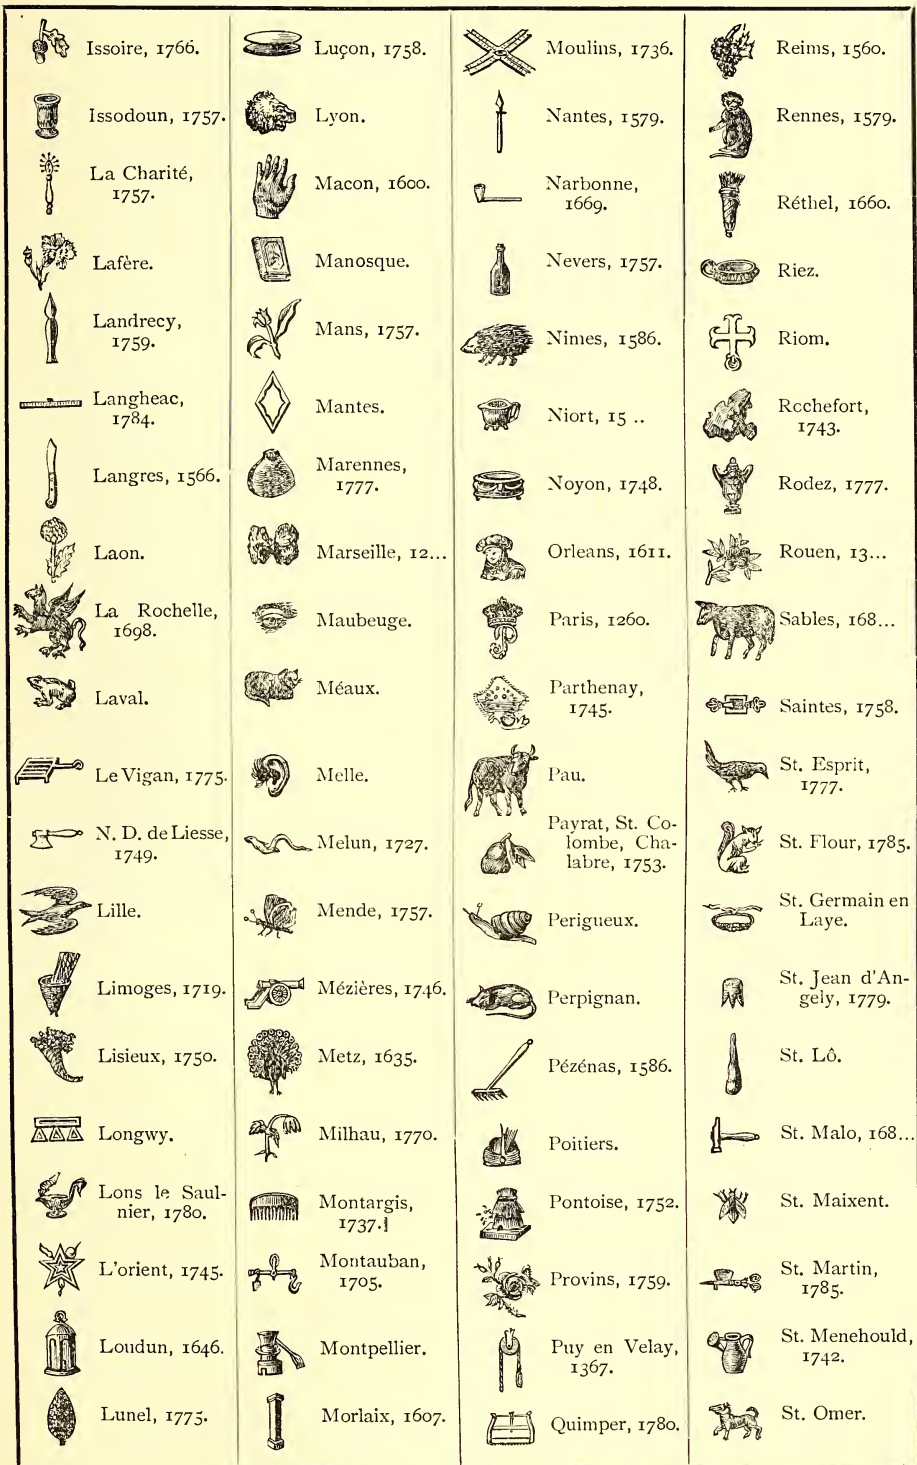 Issoire, 1766.
Issodoun, 1757.
La Charité,
1757.
Lafère.
Landrecy,
1759.
Langheac,
1784.
Langres, 1566.
Laon.
La Rochelle,
1698.
Laval.
Le Vigan, 1775.
N. D. de Liesse,
1749.
Lille.
Limoges, 1719.
Lisieux, 1750.
Longwy.
Lons le Saul-
nier, 1780.
L'orient, 1745.
Loudun, 1646.
Lunel, 1775.
Luçon, 1758.
Lyon.
Macon, 1600.
Manosque.
Mans, 1757.
Mantes.
Marennes,
1777.
Marseille, 12...
Maubeuge.
Méaux.
Melle.
Melun, 1727.
Mende, 1757.
Mézières, 1746.
Metz, 1635.
Milhau, 1770.
Montargis,
1737.
Montauban,
1705.
Montpellier.
Morlaix, 1607.
Moulins, 1736.
Nantes, 1579.
Narbonne,
1669.
Nevers, 1757.
Nimes, 1586.
Niort, 15 ..
Noyon, 1748.
Orleans, 1611.
Paris, 1260.
Parthenay,
1745.
Pau.
Payrat, St. Co-
lombe, Cha-
labre, 1753.
Perigueux.
Perpignan.
Pézénas, 1586.
Poitiers.
Pontoise, 1752.
Provins, 1759.
Puy en Velay,
1367.
Quimper, 1780.
Reims, 1560.
Rennes, 1579.
Réthel, 1660.
Riez.
Riom.
Rochefort,
1743.
Rodez, 1777.
Rouen, 13...
Sables, 168...
Saintes, 1758.
St. Esprit,
1777.
St. Flour, 1785.
St. Germain en
Laye.
St. Jean d'An-
gely, 1779.
St. Lô.
St. Malo, 168...
St. Maixent.
St. Martin,
1785.
St. Menehould,
1742.
St. Omer.